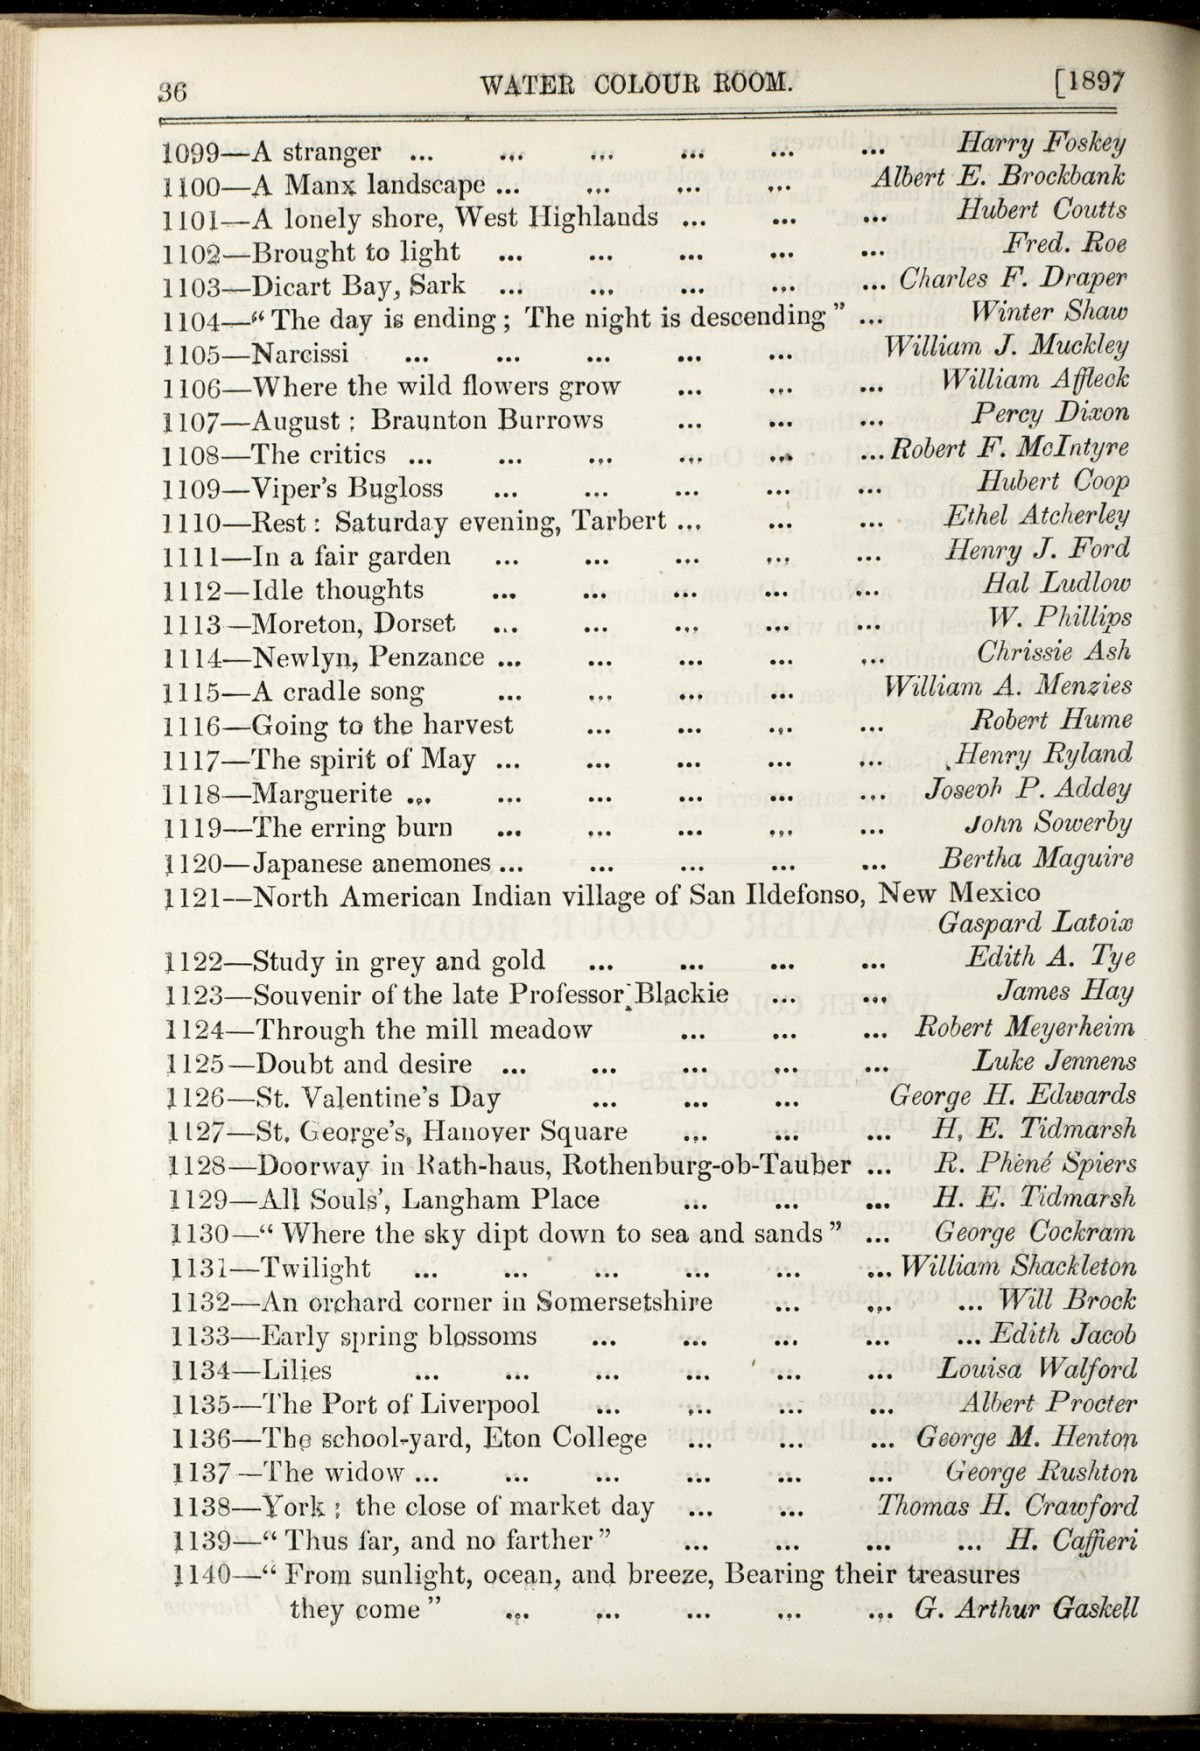 36 WATER COLOUR ROOM. [1897
1099—A stranger ... ... ... ... ... ... Harry Foskey
1100—A Manx landscape ... ... ... ... Albert E. Brockbank
1101—A lonely shore, West Highlands ... ... ... Hubert Coutts
1102—Brought to light ... ... ... ... ... Fred. Roe
1103—Dicart Bay, Sark ... ... ... ... ... Charles F. Draper
1104—“ The day is ending ; The night is descending ” ... Winter Shaw
1105—Narcissi ... ... ... ... ... William J. Muckley
1106—Where the wild flowers grow ... ... ... William Affleck
1107—August ; Braunton Burrows ... ... ... Percy Dixon
1108—The critics ... ... ... ... ... ... Robert F. McIntyre
1109—Viper’s Bugloss ... ... ... ... ... Hubert Coop
1110—Rest : Saturday evening, Tarbert ... ... ... Ethel Atcherley
1111—In a fair garden ... ... ... ... ... Henry J. Ford
1112—Idle thoughts ... ... ... ... ... Hal Ludlow
1113—Moreton, Dorset ... ... ... ... ... W. Phillips
1114—Newlyn, Penzance ... ... ... ... ... Chrissie Ash
1115—A cradle song ... ... ... ... William A. Menzies
1116—Going to the harvest ... ... ... ... Robert Hume
1117—The spirit of May ... ... ... ... ... Henry Ryland
1118—Marguerite ... ... ... ... ... ... Joseph P. Addey
1119—The erring burn ... ... ... ... ... John Sowerby
1120—Japanese anemones ... ... ... ... ... Bertha Maguire
1121—North American Indian village of San Ildefonso, New Mexico
Gaspard Latoix
1122—Study in grey and gold ... ... ... ... Edith A. Tye
1123—Souvenir of the late Professor Blackie ... ... James Hay
1124—Through the mill meadow ... ... ... Robert Meyerheim
1125—Doubt and desire ... ... ... ... ... Luke Jennens
1126—St. Valentine’s Day ... ... ... George H. Edwards
1127—St. George’s, Hanover Square ... ... ... H. E. Tidmarsh
1128—Doorway in Rath-haus, Rothenburg-ob-Tauber ... R. Phené Spiers
1129—All Souls’, Langham Place ... ... ... H. E. Tidmarsh
1130—“ Where the sky dipt down to sea and sands ” ... George Cockram
1131—Twilight ... ... ... ... ... ... William Shackleton
1132—An orchard corner in Somersetshire ... ... ... Will Brock
1133—Early spring blossoms ... ... ... ... ... Edith Jacob
1134—Lilies ... ... ... ... ... ... Louisa Walford
1135—The Port of Liverpool ... ... ... ... Albert Procter
1136—The school-yard, Eton College ... ... ... George M. Henton
1137—The widow ... ... ... ... ... ... George Rushton
1138—York ; the close of market day ... ... Thomas H. Crawford
1139—“ Thus far, and no farther ” ... ... ... ... H. Caffieri
1140—“ From sunlight, ocean, and breeze, Bearing their treasures
they come ” ... ... ... ... ... G. Arthur Gaskell